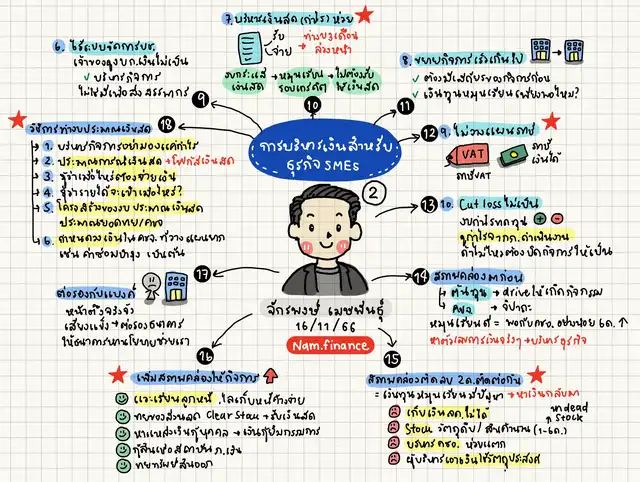 การบริหารเงินสำหรับ
ธุรกิจ SMEs
2
จักรพงษ์ เมษพันธุ์
16/11/66
Nam.finance
9
6. ไร้ระบบจัดการบช.
เจ้าของธุรกิจ
✓ บริหารกิจการ
ไม่ใช่มีเพื่อส่งสรรพากร
10
7. บริหารเงินสด (กำไร) ห่วย
รับ
จ่าย
ล่วงหน้า
งบกระแส
เงินสด
หมุนเวียน
รอบเครดิต
ไม่ต้องรับ
ใช้เงินสด
11
8. ขยายกิจการเร็วเกินไป
✓ ต้องมีเสถียรของกิจการก่อน
✓ เงินทุนหมุนเวียนเพียงพอไหม?
12
9. ไม่วางแผนภาษี
VAT
ภาษี VAT
ภาษี
เงินได้
13
10. Cut loss ไม่เป็น
งบกำไรขาดทุน + -
ดูกำไรจากก.ดำเนินงาน
ถ้าไม่ไหวต้องปิดกิจการให้เป็น
14
สภาพคล่องมาก่อน
ต้นทุน → drive ให้เกิดกิจกรรม
คชจ. → จำปาถะ
15
สภาพคล่องติดลบ 2ด.ติดต่อกัน
= เงินทุนหมุนเวียนมีปัญหา → หาเงินกลับมา
เก็บเงินลค.ไม่ได้
Stock วัตถุดิบ/สินค้านาน (1-6ด.)
dead
stock
บริหาร คชจ. ห่วยแตก
ผู้บริหารเอาเงินใช้ผิดวัตถุประสงค์
16
เพิ่มสภาพคล่องให้กิจการ
ขายของล้นสต Clear Stock → รับเงินสด
หาแหล่งเงินกู้บุคคล → เงินกู้กรรมการ
กู้สินเชื่อสถาบันก.เงิน
ขายทรัพย์สินออก
17
ต่อรองกับแบงค์
หน้าตัวจริงจัง
เสียงแข็ง → ต่อรองธนาคาร
ให้ธนาคารหานโยบายช่วยเรา
18
วิธีการทำงบประมาณเงินสด
1. บริหารกิจการอย่ามองแค่กำไร
2. ประมาณการณ์เงินสด → โฟกัสเงินสด
3. รู้ว่าเมื่อไหร่ต้องจ่ายเงิน
4. รู้ว่ารายได้จะเข้าเมื่อไหร่?
5. โครงสร้างของงบประมาณเงินสด
ประมาณยอดขาย/คชจ
6. กำหนดวงเงินในคชจ. ที่วางแผนแยก
เช่น ค่าซ่อมบำรุง เป็นต้น